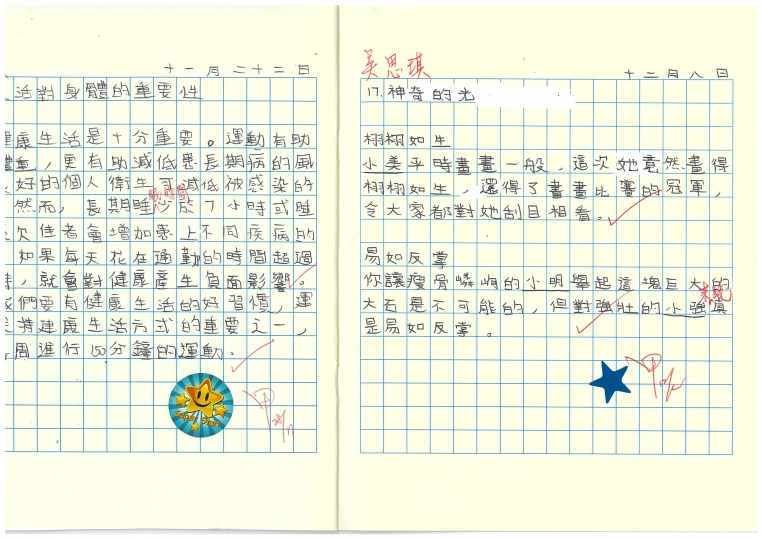 十一月二十二日
活對身體的重要性
康生活是十分重要。運動有助
重，更有助減低患長期病的風
好的個人衛生可減低被感染的
然而，長期睡少於7小時或睡
眠時間
欠佳者會增加患上不同疾病的
如果每天花在通勤的時間超過
時，就會對健康產生負面影響。
們要有健康生活的好習慣，運
持健康生活方式的重要之一，
周進行150分鐘的運動。
Super Star
甲
吳思琪
十二月八日
17.神奇的光
栩栩如生
小美平時畫畫一般，這次她竟然畫得
栩栩如生，還得了畫畫比賽的冠軍，
令大家都對她刮目相看。
易如反掌
你讓瘦骨嶙峋的小明舉起這塊巨大的
大石是不可能的，但對強壯的小強
是易如反掌。
甲